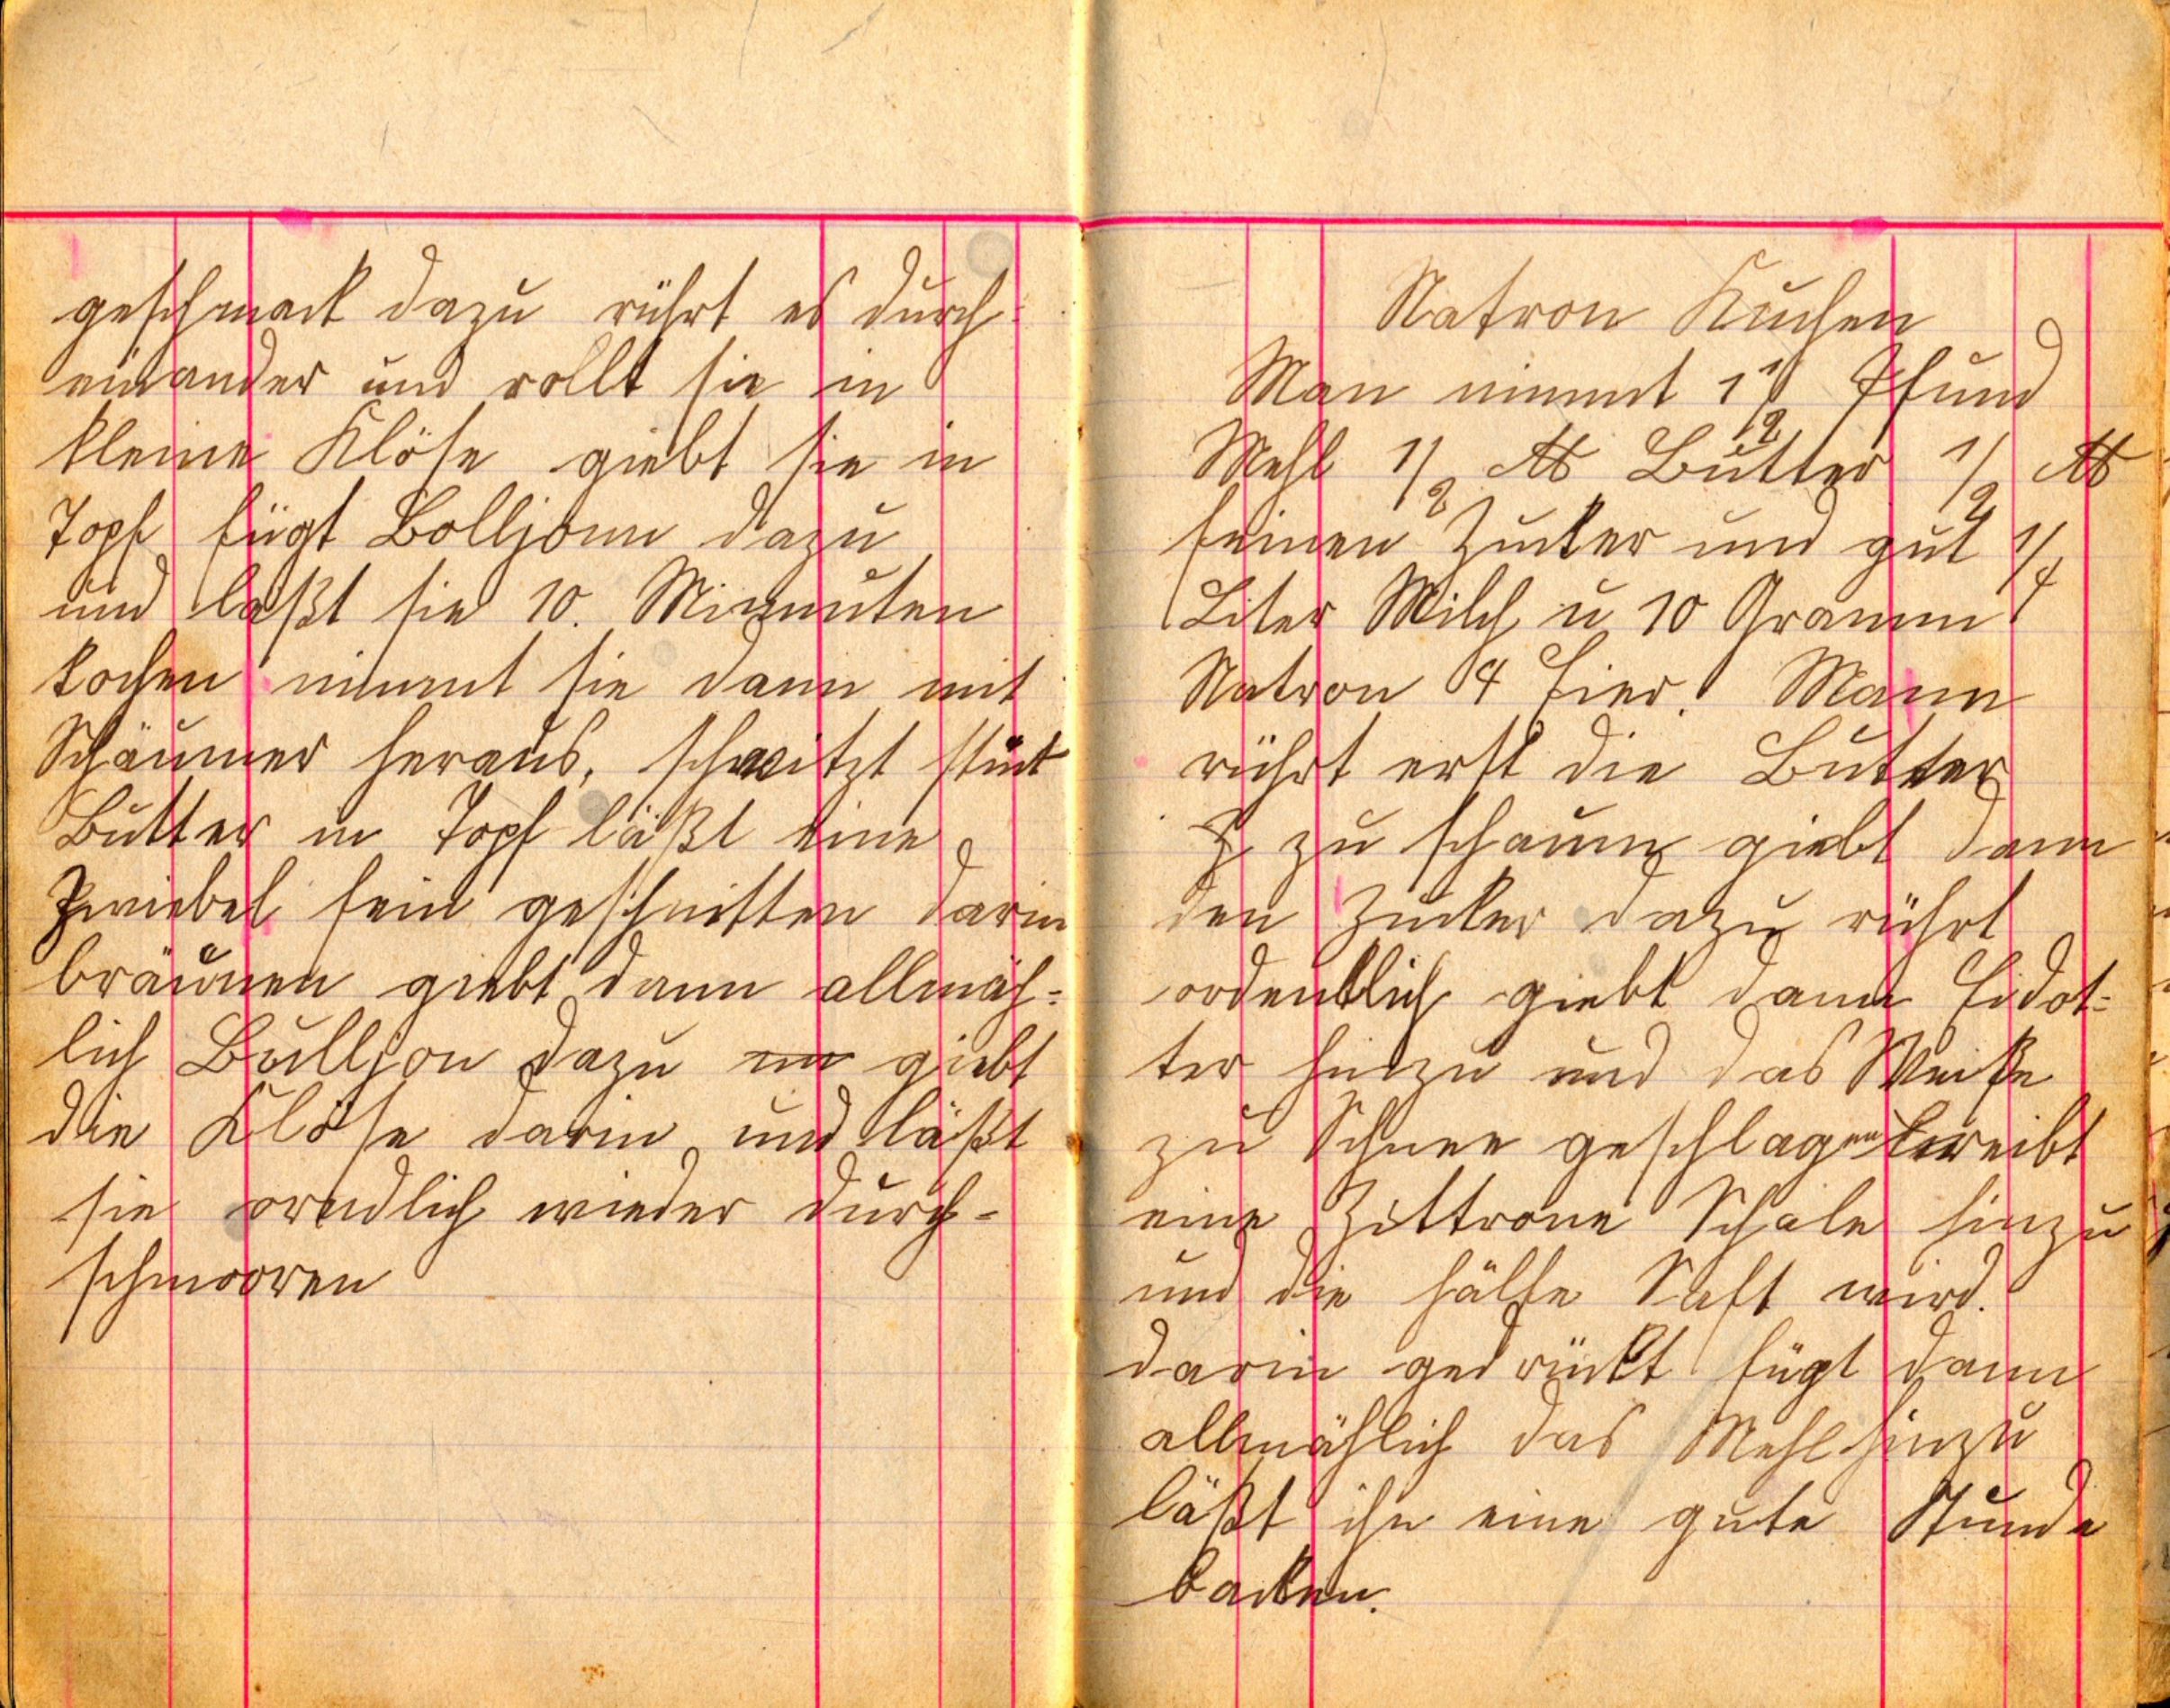 geschmack dazu rührt es durch-
einander und rollt sie in
kleine Klöse giebt sie in
Topf fügt Bolljonn dazu
und laßt sie 10. Minnuten
kochen nimmt sie dann mit
Schäumer heraus, schwitzt stück
Butter in Topf läßt eine
Zwiebel fein geschnitten darin
bräunen giebt dann allmäh-
lich Bulljon dazu un giebt
die Klöse darin und läßt
sie orndlich wieder durch-
schmooren
Natron Kuchen
Man nimmt 1 1/2 Pfund
Mehl 1/2 ℔ Butter 1/2 ℔
feinen Zucker und gut 1/4
Liter Milch u 10 Gramm
Natron 4 Eier. Mann
rührt erst die Butter
Z zu schaum giebt dann
den Zucker dazu rührt
ordentlich giebt dann Eidot-
ter hinzu und das Weiße
zu Schnee geschlagen reibt
eine Zittrone Schale hinzu
und die hälfte Saft wird.
darin gedrückt fügt dann
allmählich das Mehl hinzu
läßt ihn eine gute Stunde
backen.